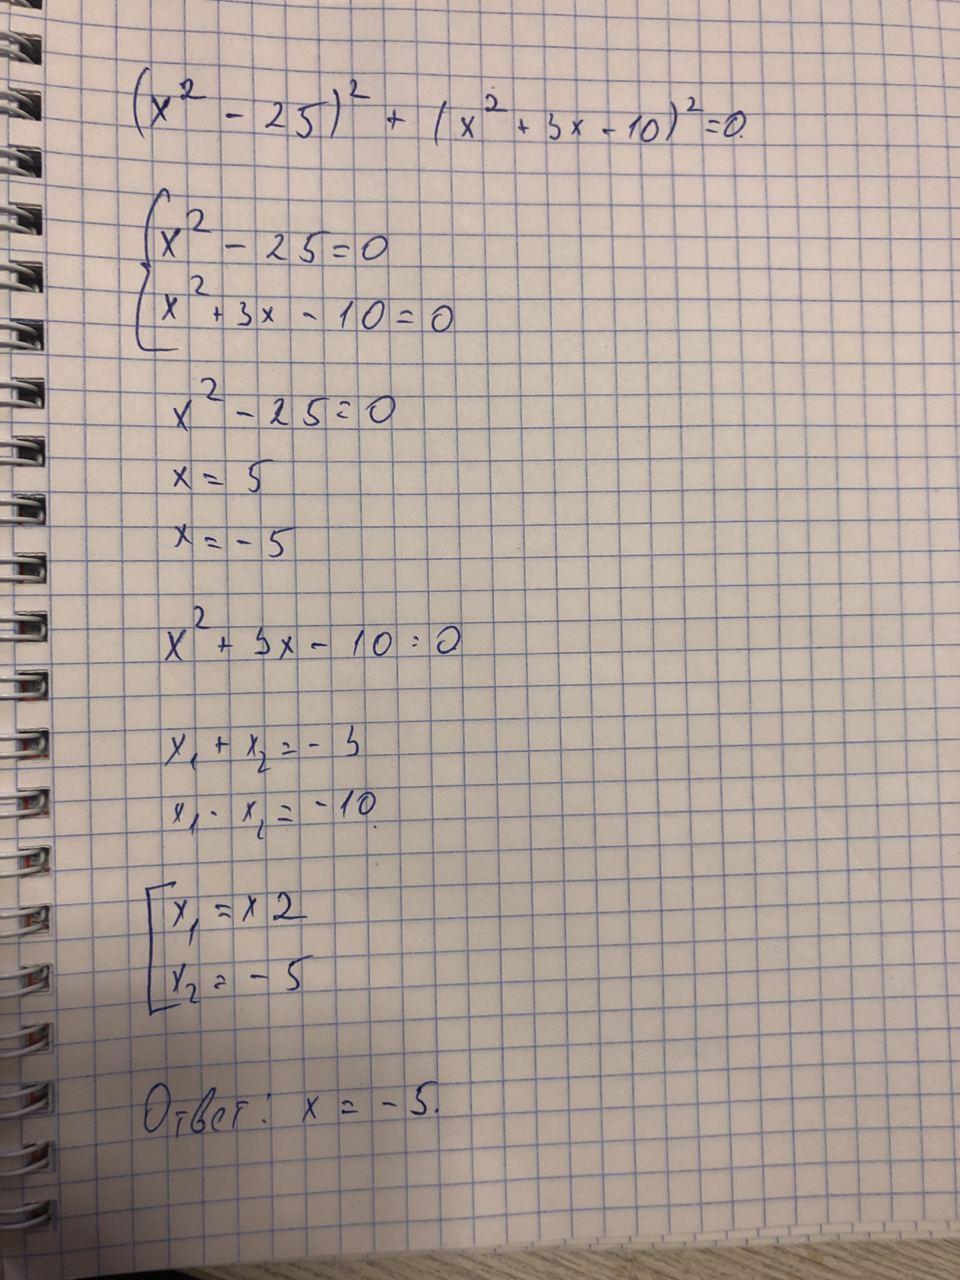 (x² - 25)² + (x² + 3x - 10)² = 0.
x² - 25 = 0
x² + 3x - 10 = 0
x² - 25 = 0
x = 5
x = - 5
x² + 3x - 10 = 0
x₁ + x₂ = - 3
x₁ · x₂ = - 10.
x₁ = 2
x₂ = - 5
Ответ: x = - 5.